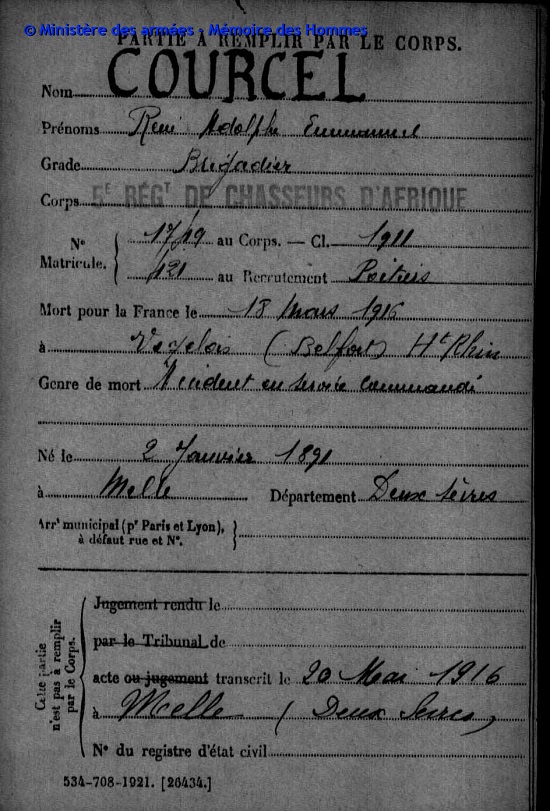 © Ministère des armées - Mémoire des Hommes
PARTIE À REMPLIR PAR LE CORPS.
Nom COURCEL
Prénoms René Adolphe Emmanuel
Grade Brigadier
Corps 5E RÉGT DE CHASSEURS D'AFRIQUE
N° Matricule. { 1719 au Corps. — Cl. 1911
121 au Recrutement Poitiers
Mort pour la France le 18 Mars 1916
à (Belfort) Ht Rhin
Genre de mort Accident en service commandé
Né le 2 Janvier 1891
à Melle Département Deux Sèvres
Arrt municipal (pr Paris et Lyon), à défaut rue et N°. }
Cette partie n'est pas à remplir par le Corps.
Jugement rendu le
par le Tribunal de
acte ou jugement transcrit le 20 Mai 1916
à Melle (Deux Sèvres)
N° du registre d'état civil
534-708-1921. [26434.]